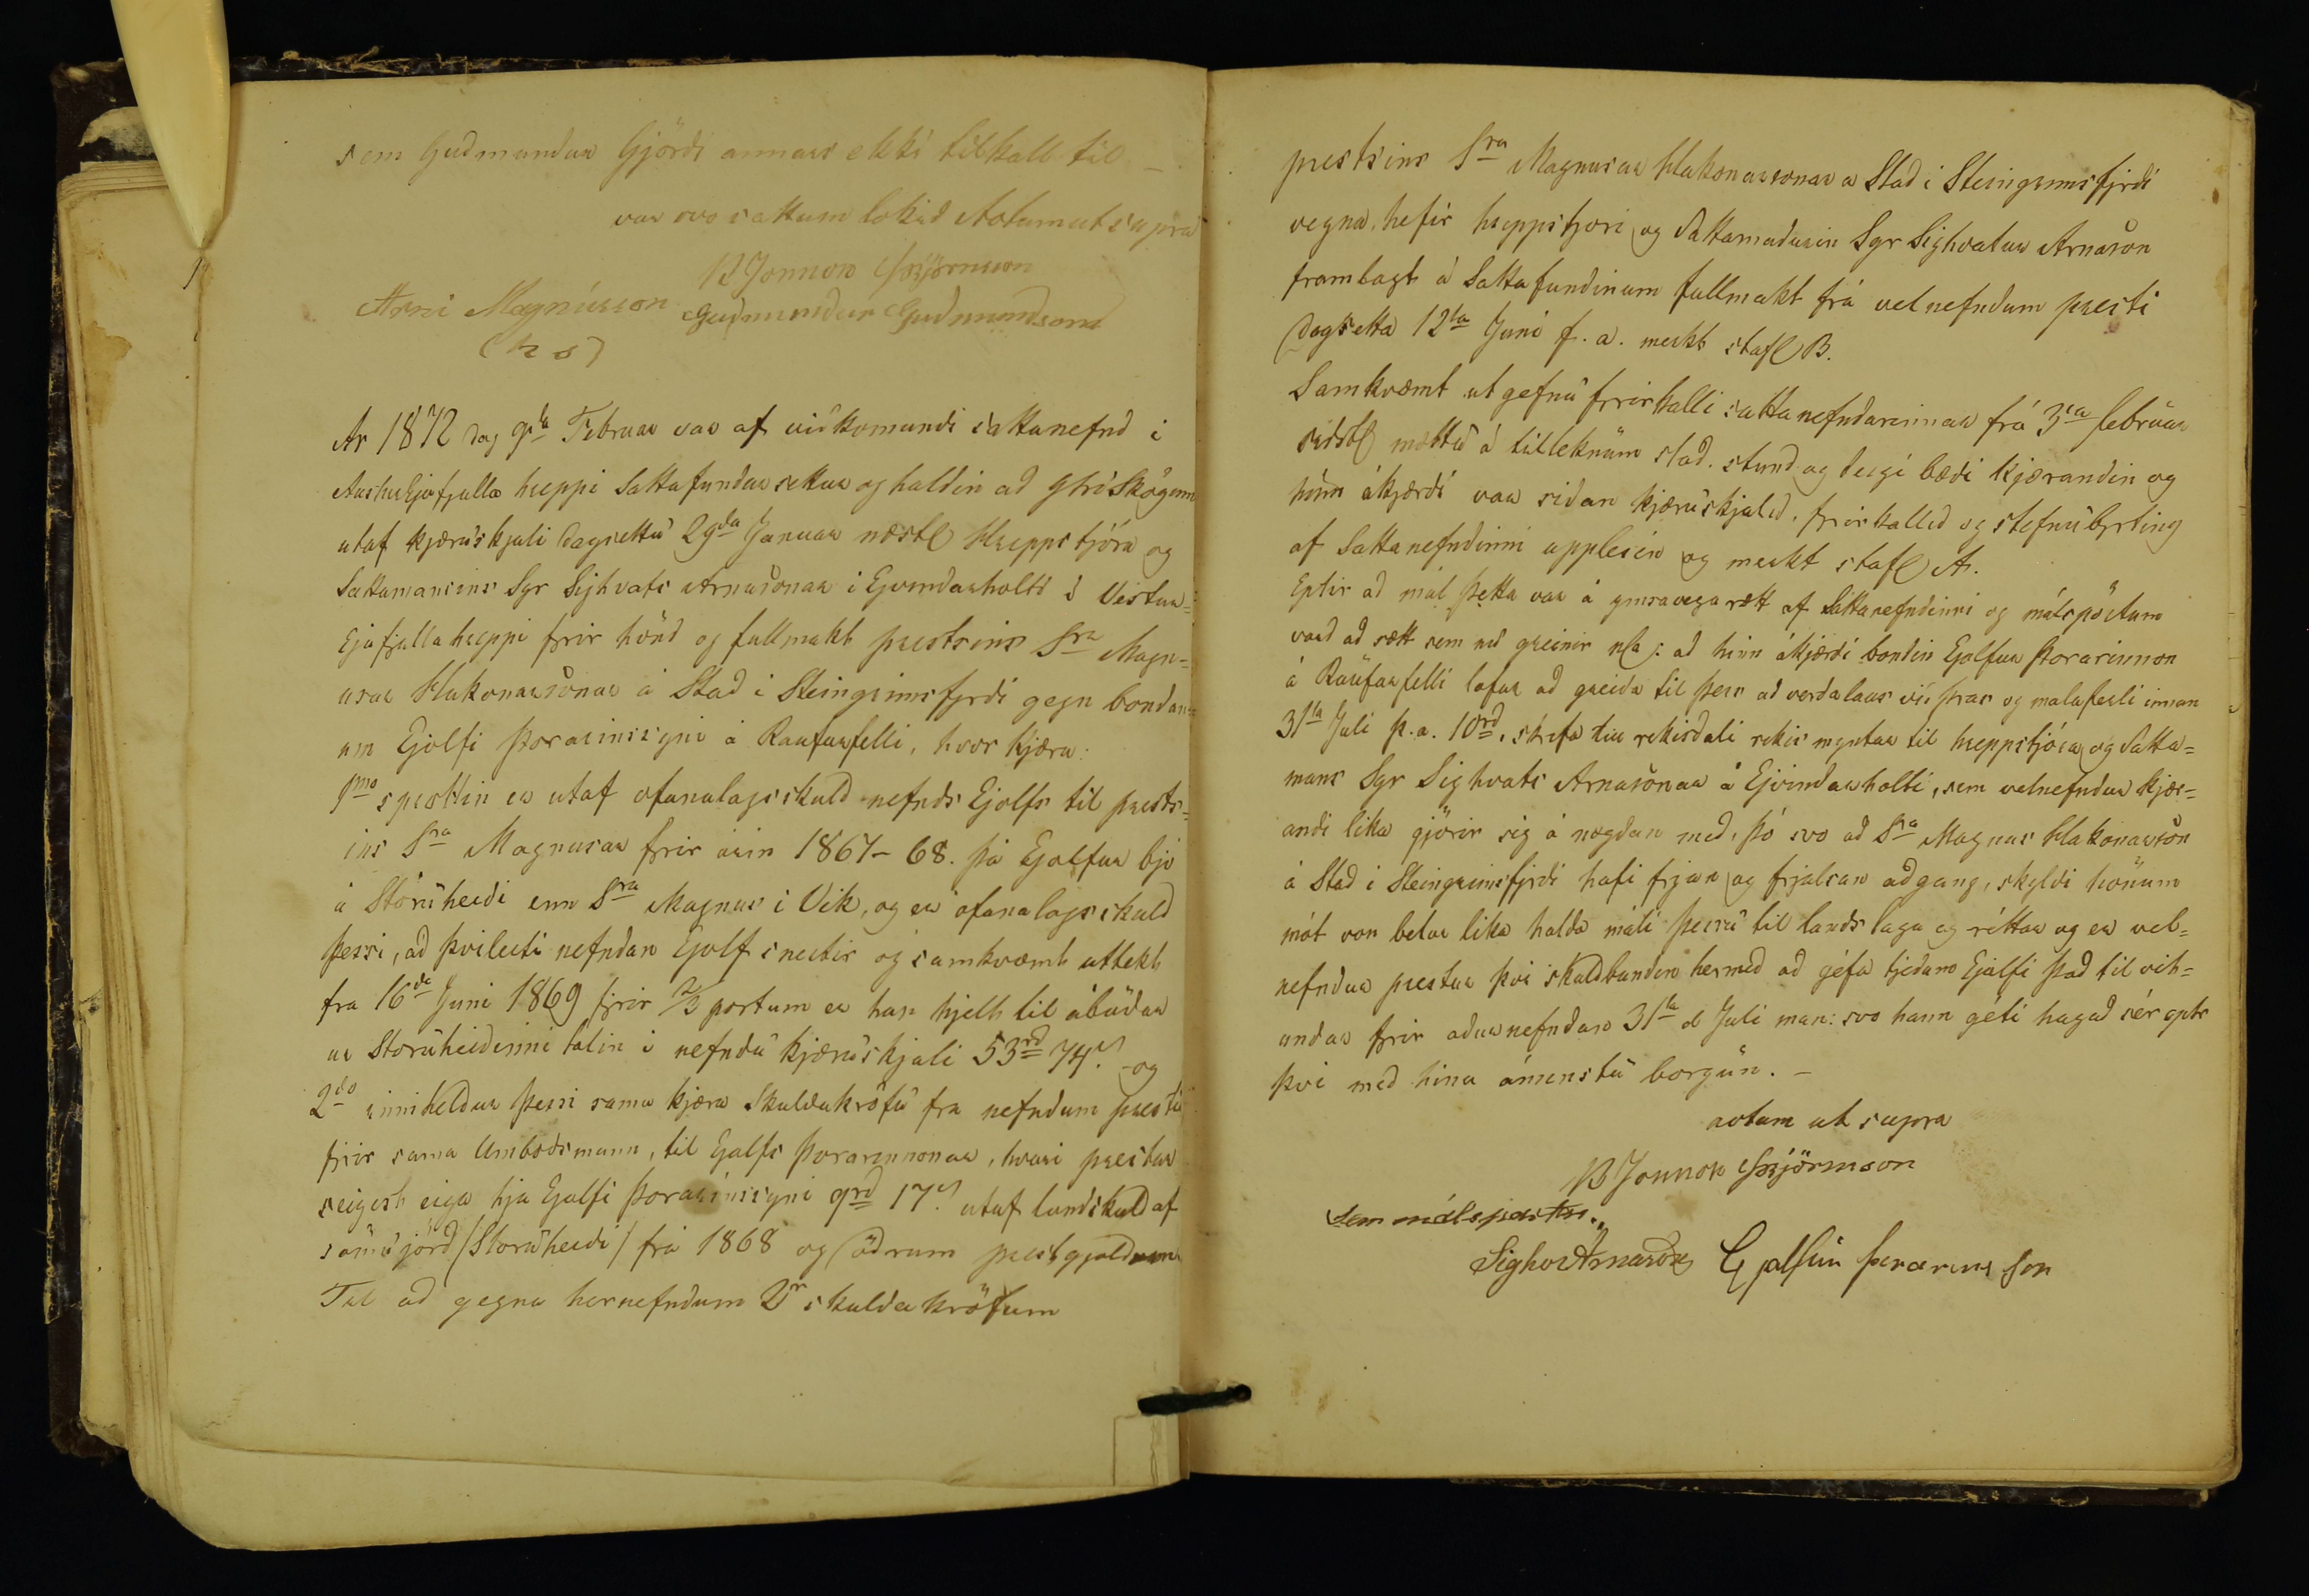 sem Guðmundur Gjörði annars ekki tilkall til –
var svo sáttum lokið Actum ut supra
B Jonnson Sv Björnsson
Arni Magnússon Guðmundur Guðmundsson
(h s)
Ar 1872 dag 9da Februar var af viðkomandi sáttanefnd i
Austureyafjalla hreppi Sáttafundur settur og haldin að Ytri Skögum
utaf kjæruskjali dagsettu 29da Januar næstl Hreppstjóra og
Sáttamansins Sgr Sighvats Arnasonar i Eyvindarholti i Vestur-
Eyafjallahreppi fyrir hönd og fullmakt prestsins Sra Magn=
usar Hakonarsonar á Stad i Steingrimsfyrði gegn bondan=
um Ejolfi Þorarinssyni á Raufarfelli, hvor kjæra:
1mo sprottin er utaf ofanalagsskuld nefnds Ejolfs til prests=
ins Sra Magnusar fyrir árin 1867–68. þá Ejolfur bjó
á Stóruheiði enn Sra Magnus i Vik, og er ofanalagsskuld
þessi, að þvileiti nefndan Ejolf snertir og samkvæmt uttekt
fra 16da Juni 1869 fyrir 2/3 portum er han hjelt til ábúðar
ur Storuheiðinni talin i nefndu kjæruskjali 53rd 74s. og
2do inniheldur þessi sama kjæra Skuldakröfu fra nefndum presti
fyrir sama Umboðsmann, til Ejolfs Þorarinnsonar, hvari prestur
seigist eiga hja Ejolfi Þorarinssyni 9rd 17s. utaf landskuld af
sömu jörð /Storuheiði/ frá 1868 og öðrum prestgjoldum
Til að gegna hernefndum 2r skuldakröfum
prestsins Sra Magnusar Hakonarsonar a Stad i Steingrimsfyrði
vegna, hefir hreppstjori og Sáttamadurin Sgr Sighvatur Arnason
framlagt á Sáttafundinum fullmakt frá velnefndum presti
dagsetta 12ta Juni f. a. merkt staf B.
Samkvæmt utgefnu fyrirkalli sattanefndarinnar frá 3ja februar
siðstl mættu á tilteknum stad, stund og degi bæði kjærandin og
hinn ákjærði var siðan kjæruskjalið, fyrirkallið og stefnubyrting
af Sáttanefndinni upplesin og merkt staf A.
Eptir að mál þetta var á ymsavega rætt af Sáttanefndinni og málspörtum
varð að sætt sem nú greinir nfl: að hinn ákjærði bondin Ejolfur Þorarinnson
á Raufarfelli lofar að greiða til þess að verðalaus við þras og malaferli innan
31ta Juli þ. a. 10rd, skrifa tiu rikisdali rikis myntar til hreppstjóra og Sátta=
mans Sgr Sighvats Arnasonar á Eyvindarholti, sem velnefndur kjær=
andi lika gjörir sig á nægðan með, þó svo að Sra Magnus Hakonarson
á Stad i Steingrimsfyrði hafi fryan og frjalsan aðgang, skyldi hönum
mót von betur lika halda máli þessu til lands laga og réttar og er vel=
nefndur prestur þvi skuldbundin hermeð að géfa tjeðum Ejolfi það til vit=
undar fyrir áðurnefndan 31ta d Juli man: svo hann géti hagað sér eptir
þvi með hina ámenstu borgun. –
actum ut supra
B Jonnson Sv Björnsson
Sem málspartar.,
Sighv Arnason Ejolfur Þorarins son